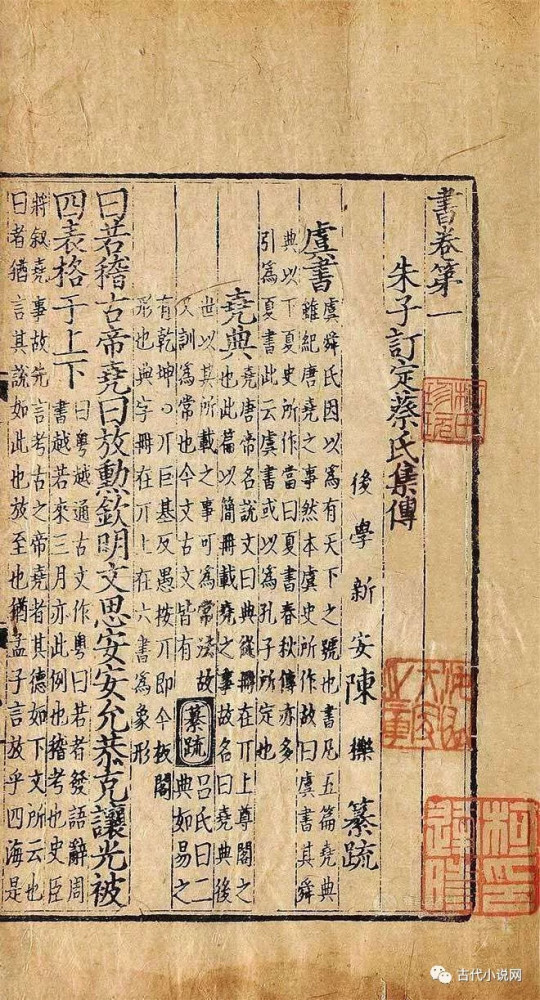 書卷第一
朱子訂定蔡氏集傳
後學新安陳櫟纂疏
虞書
虞舜氏因以爲有天下之號也書凡五篇堯典
雖紀唐堯之事然本虞史所作故曰虞書其舜
典以下夏史所作當曰夏書春秋傳亦多
引爲夏書此云虞書或以爲孔子所定也
堯典
堯唐帝名說文曰典從冊在丌上尊閣之
也此篇以簡冊載堯之事故名曰堯典後
世以其所載之事可爲常法故
又訓爲常也今文古文皆有
纂疏
呂氏曰二
典如易之
有乾坤丌巨基反愚按丌即今板閣
形也典字冊在丌上在六書爲象形
曰若稽古帝堯曰放勳欽明文思安安允恭克讓光被
四表格于上下
曰粤越通古文作粤曰若者發語辭周
書越若來三月亦此例也稽考也史臣
將叙堯事故先言考古之帝堯者其德如下文所云也
曰者猶言其說如此也放至也猶孟子言放乎四海是
柯印逢時
古代小说网